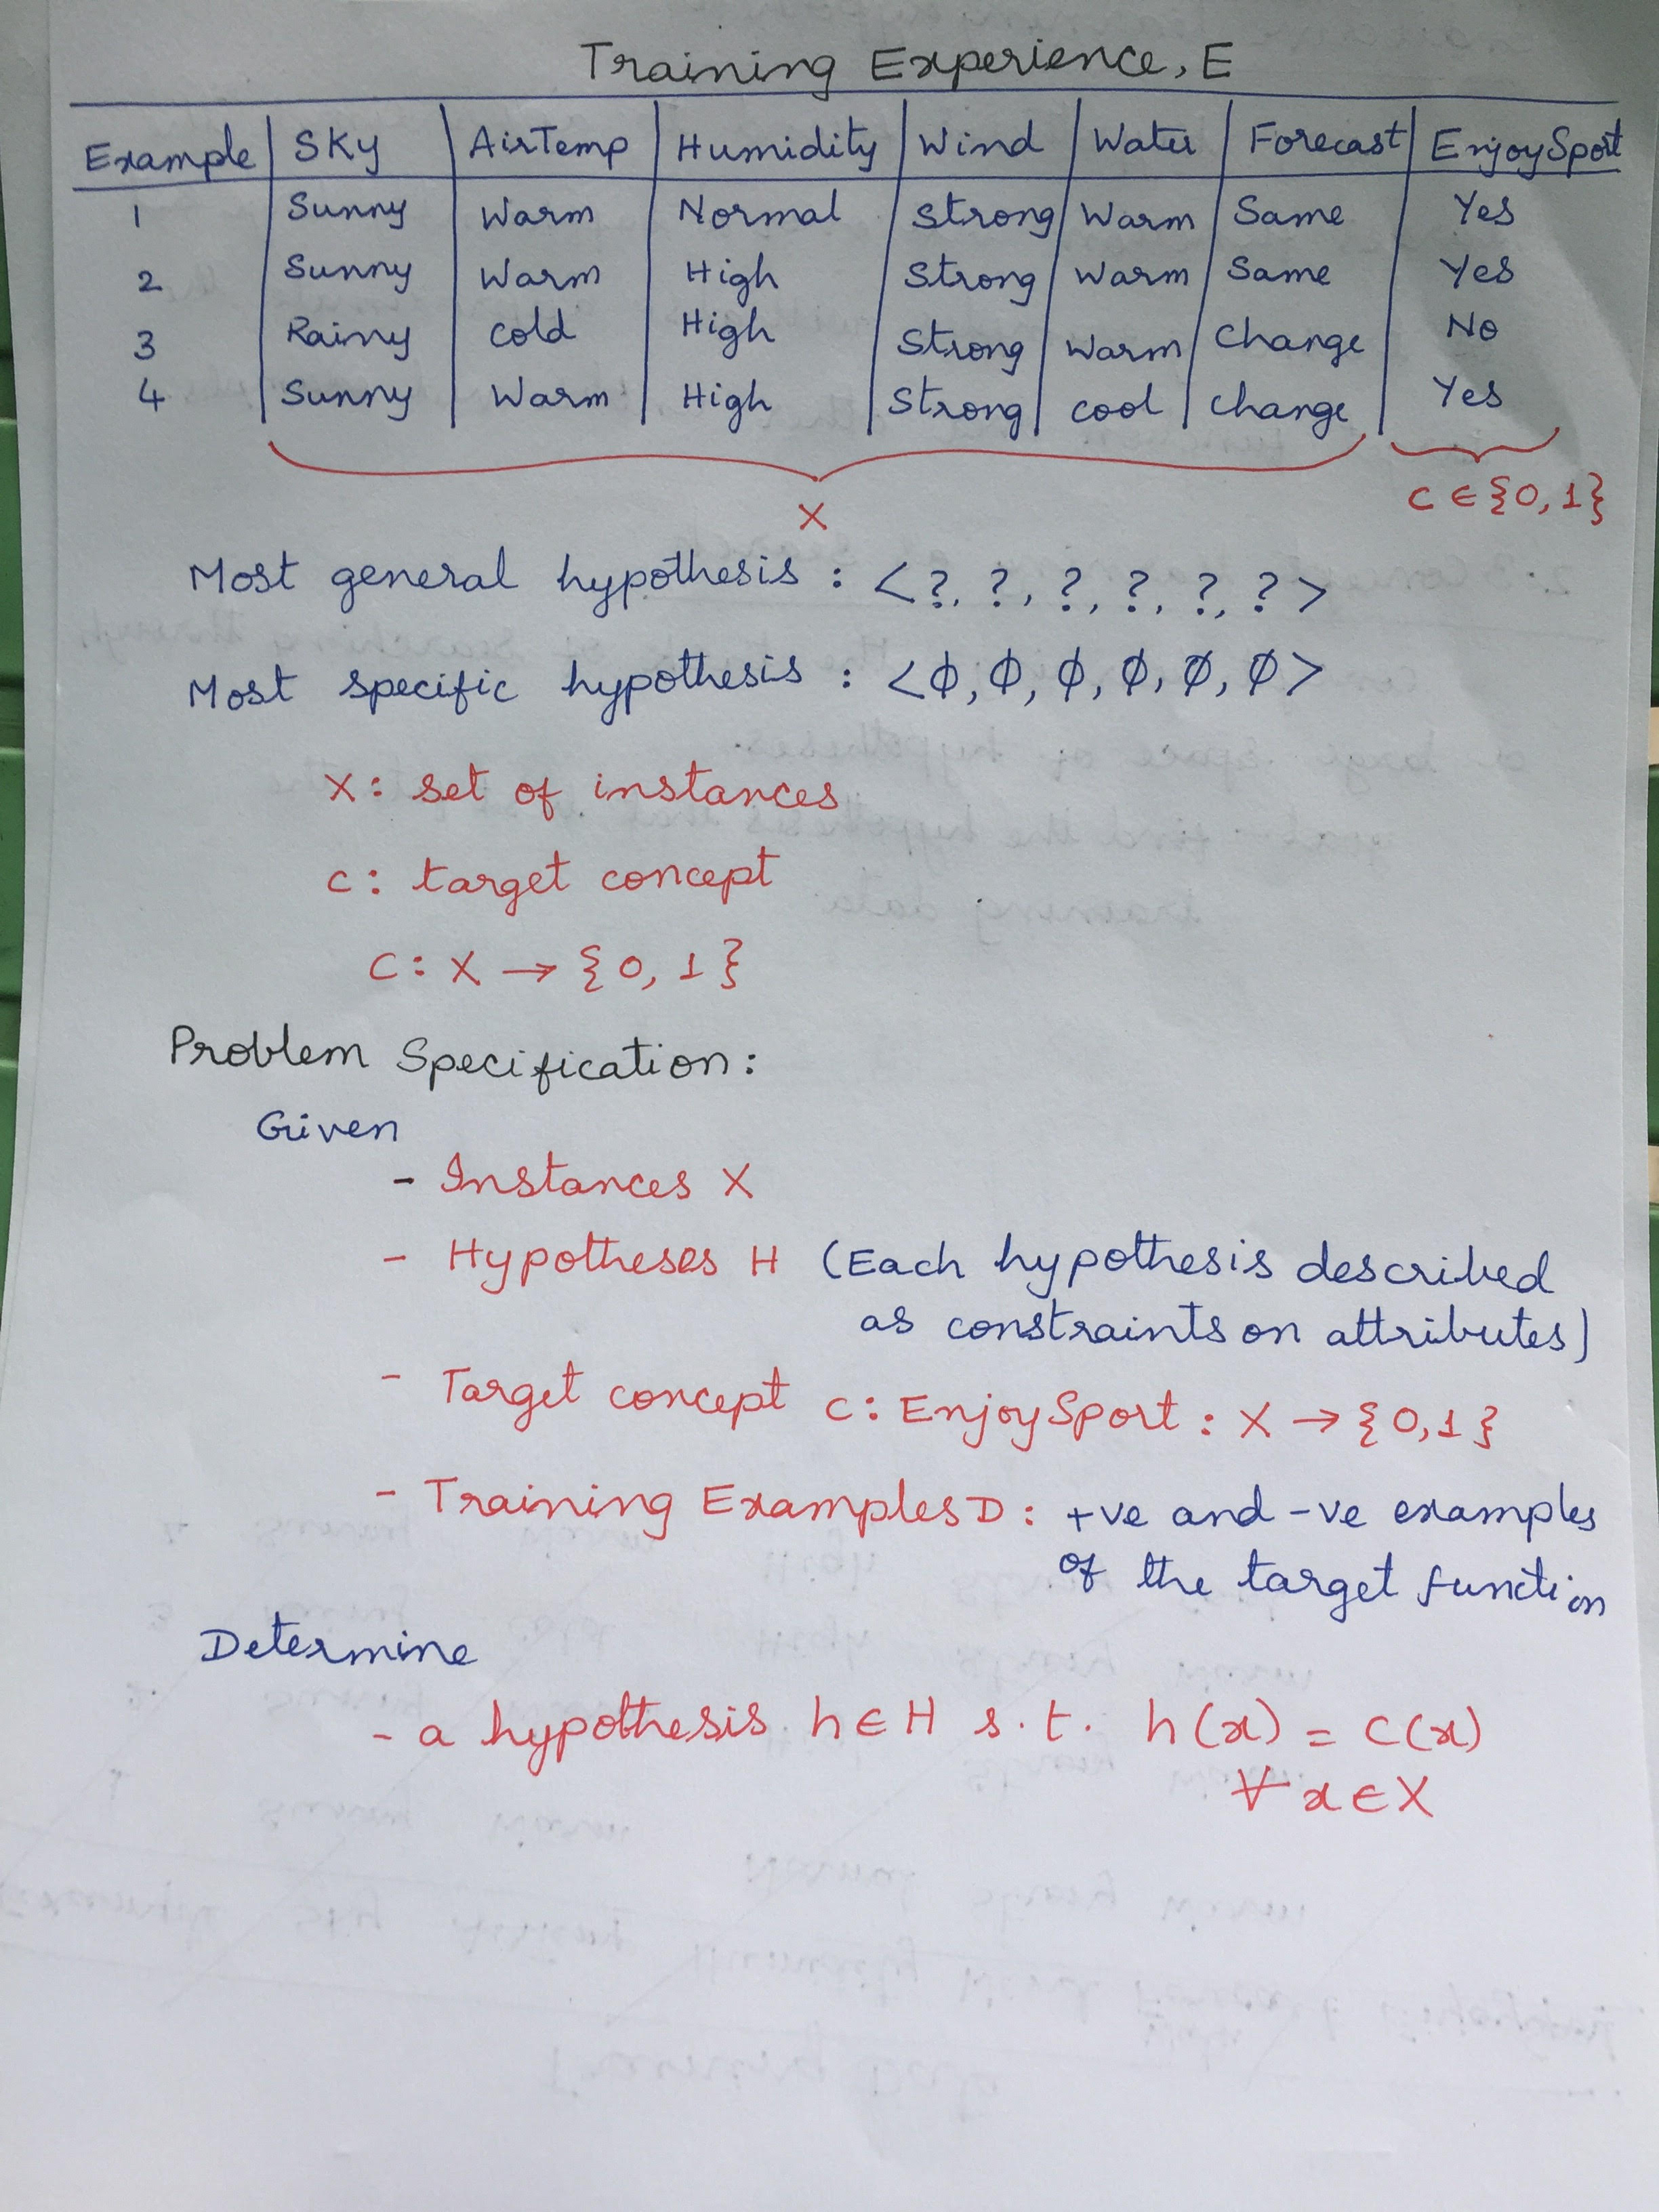 Training Experience, E
Example | Sky | AirTemp | Humidity | Wind | Water | Forecast | EnjoySport
1 | Sunny | Warm | Normal | Strong | Warm | Same | Yes
2 | Sunny | Warm | High | Strong | Warm | Same | Yes
3 | Rainy | cold | High | Strong | Warm | Change | No
4 | Sunny | Warm | High | Strong | cool | change | Yes
X
C ∈ {0, 1}
Most general hypothesis : <?, ?, ?, ?, ?, ?>
Most specific hypothesis : <φ, φ, φ, φ, φ, φ>
X : set of instances
c : target concept
C : X → {0, 1}
Problem Specification :
Given
- Instances X
- Hypotheses H (Each hypothesis described
as constraints on attributes)
- Target concept c : EnjoySport : X → {0,1}
- Training Examples D : +ve and -ve examples
of the target function
Determine
- a hypothesis h ∈ H s.t. h(x) = c(x)
∀ x ∈ X